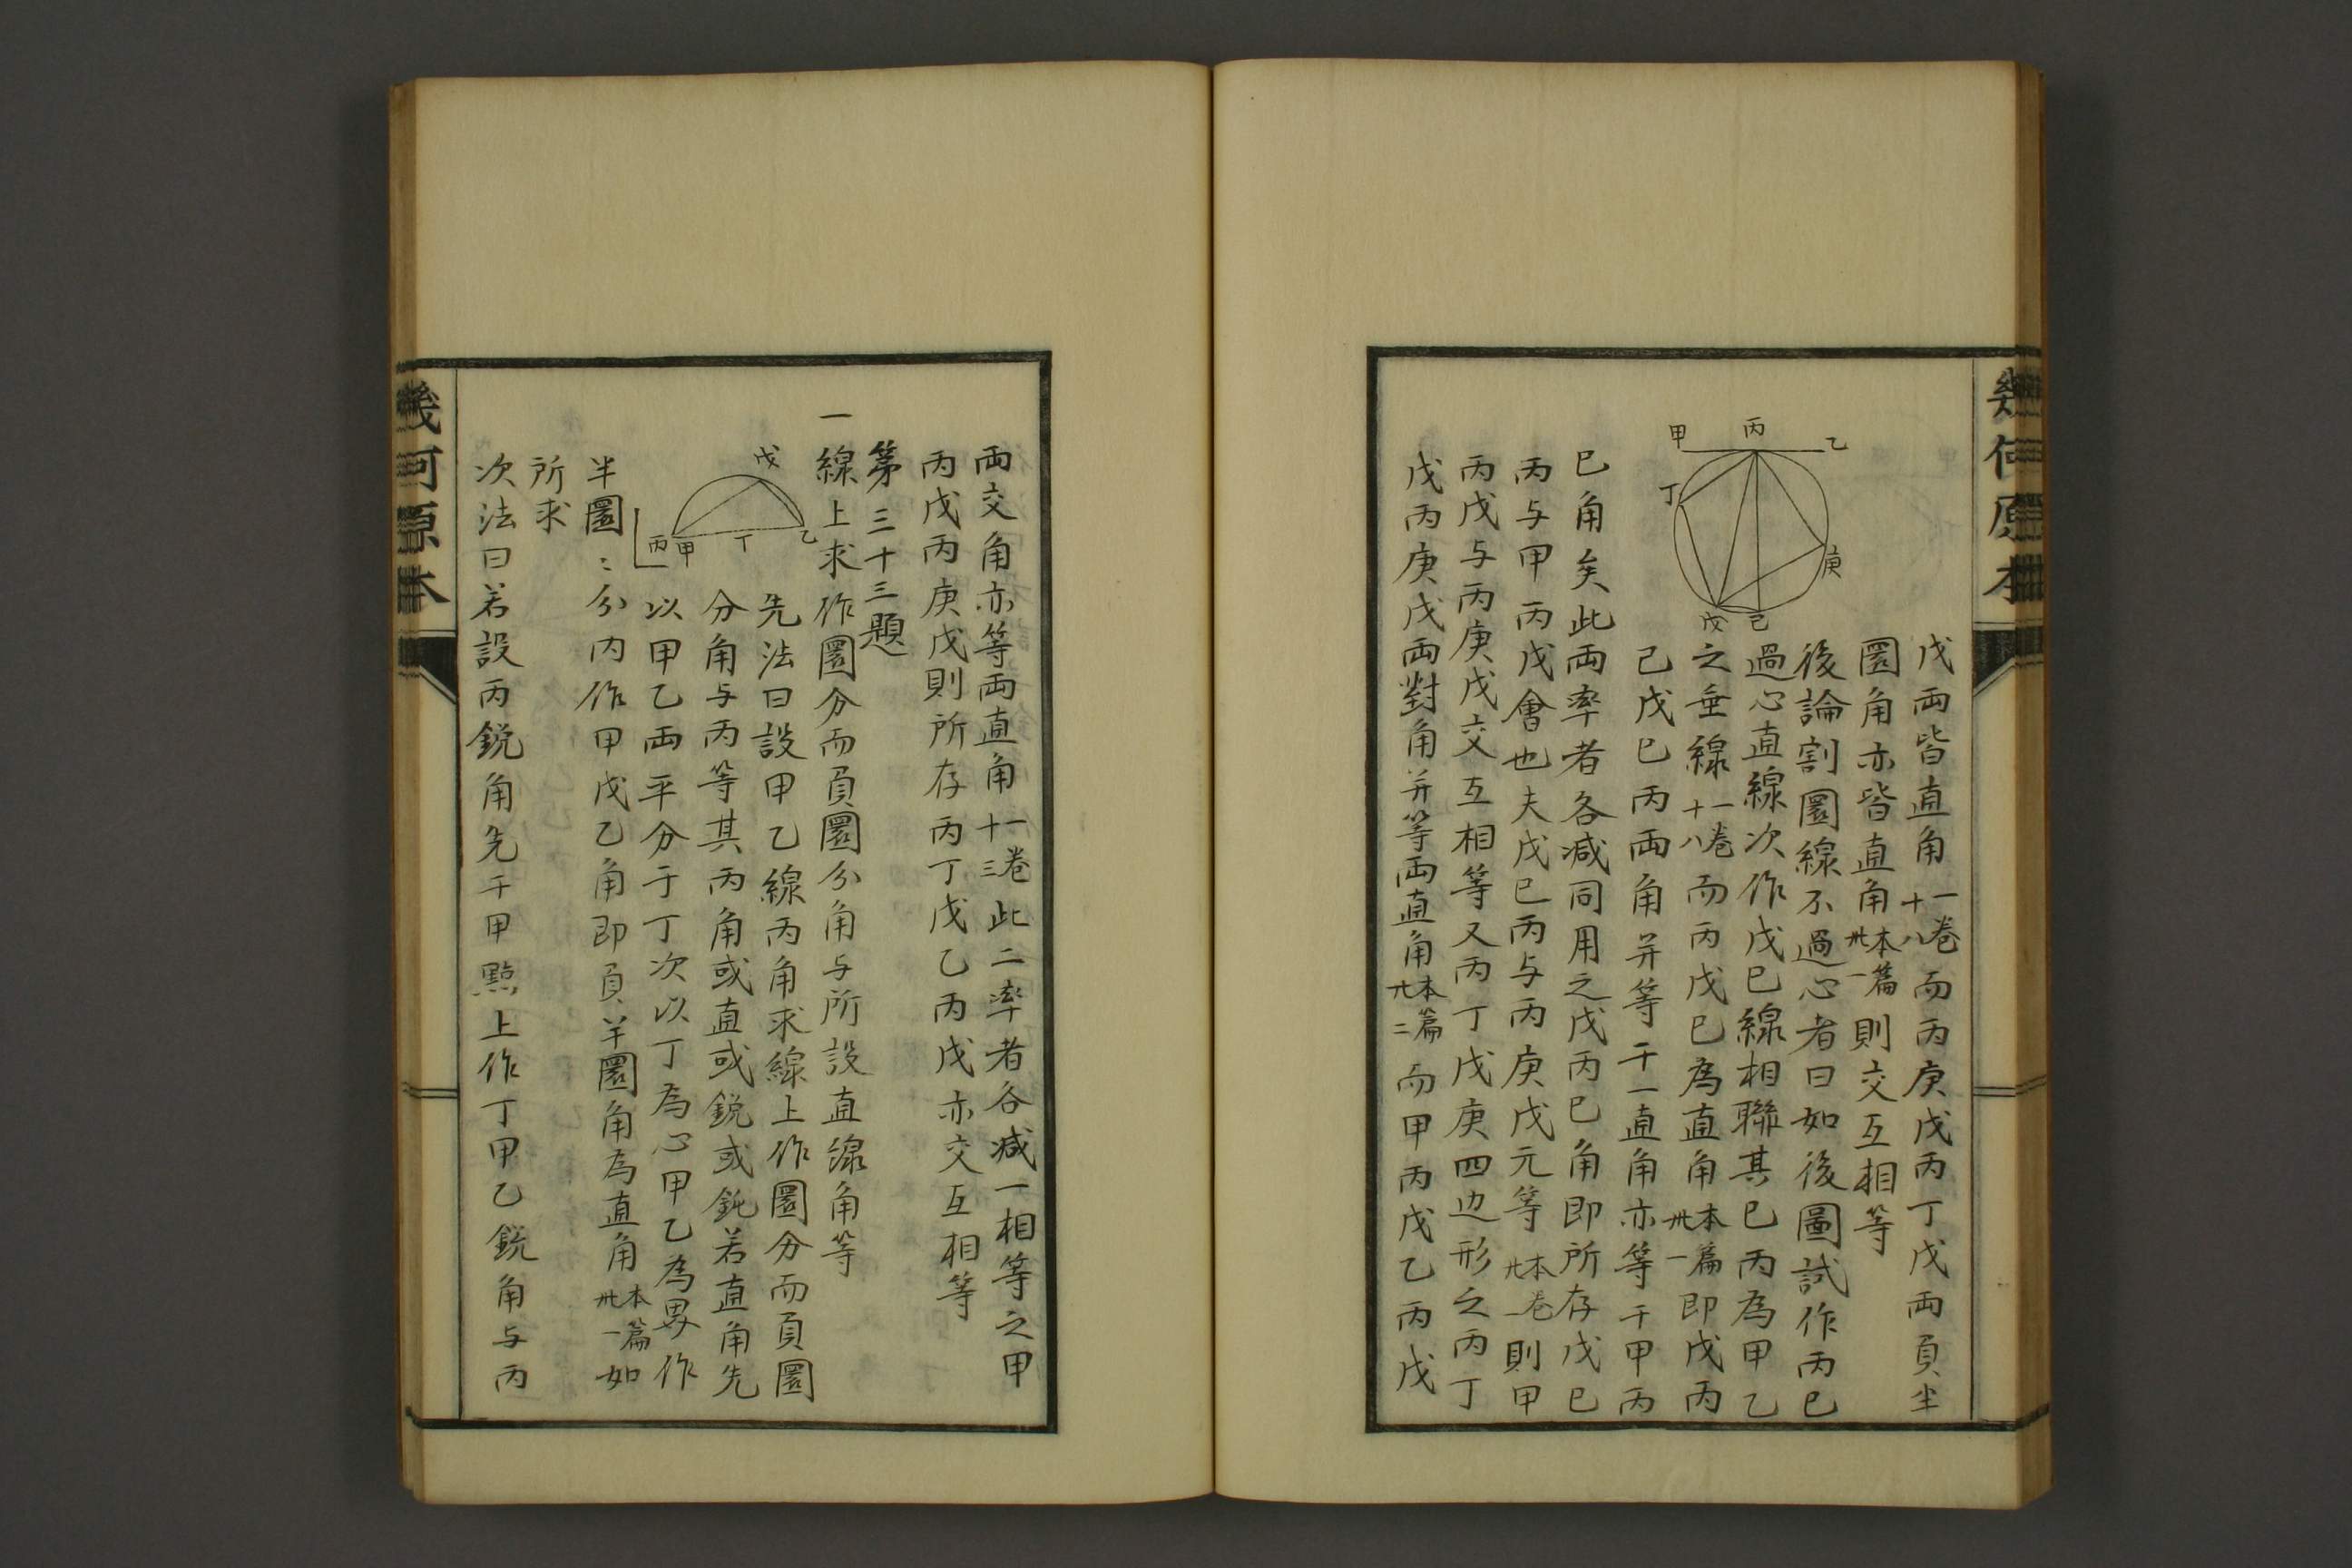 幾何原本
甲 丙 乙
丁
庚
戊 己
戊兩皆直角一卷十八而丙庚戊丙丁戊兩負半
圜角亦皆直角本篇卅一則交互相等
後論割圜線不過心者曰如後圖試作丙巳
過心直線次作戊巳線相聯其巳丙為甲乙
之垂線一卷十八而丙戊巳為直角本篇卅一即戊丙
己戊巳丙兩角并等于一直角亦等于甲丙
巳角矣此兩率者各减同用之戊丙巳角即所存戊巳
丙与甲丙戊會也夫戊巳丙与丙庚戊元等本卷卄一則甲
丙戊与丙庚戊交互相等又丙丁戊庚四边形之丙丁
戊丙庚戊兩對角并等兩直角本篇卄二而甲丙戊乙丙戊
兩交角亦等兩直角一卷十三此二率者各减一相等之甲
丙戊丙庚戊則所存丙丁戊乙丙戊亦交互相等
第三十三題
一線上求作圜分而負圜分角与所設直線角等
戊
丙 甲 丁 乙
先法曰設甲乙線丙角求線上作圜分而負圜
分角与丙等其丙角或直或鋭或鈍若直角先
以甲乙兩平分于丁次以丁為心甲乙為界作
半圜〻分内作甲戊乙角即負半圜角為直角本篇卅一如
所求
次法曰若設丙鋭角先于甲點上作丁甲乙鋭角与丙
幾何原本